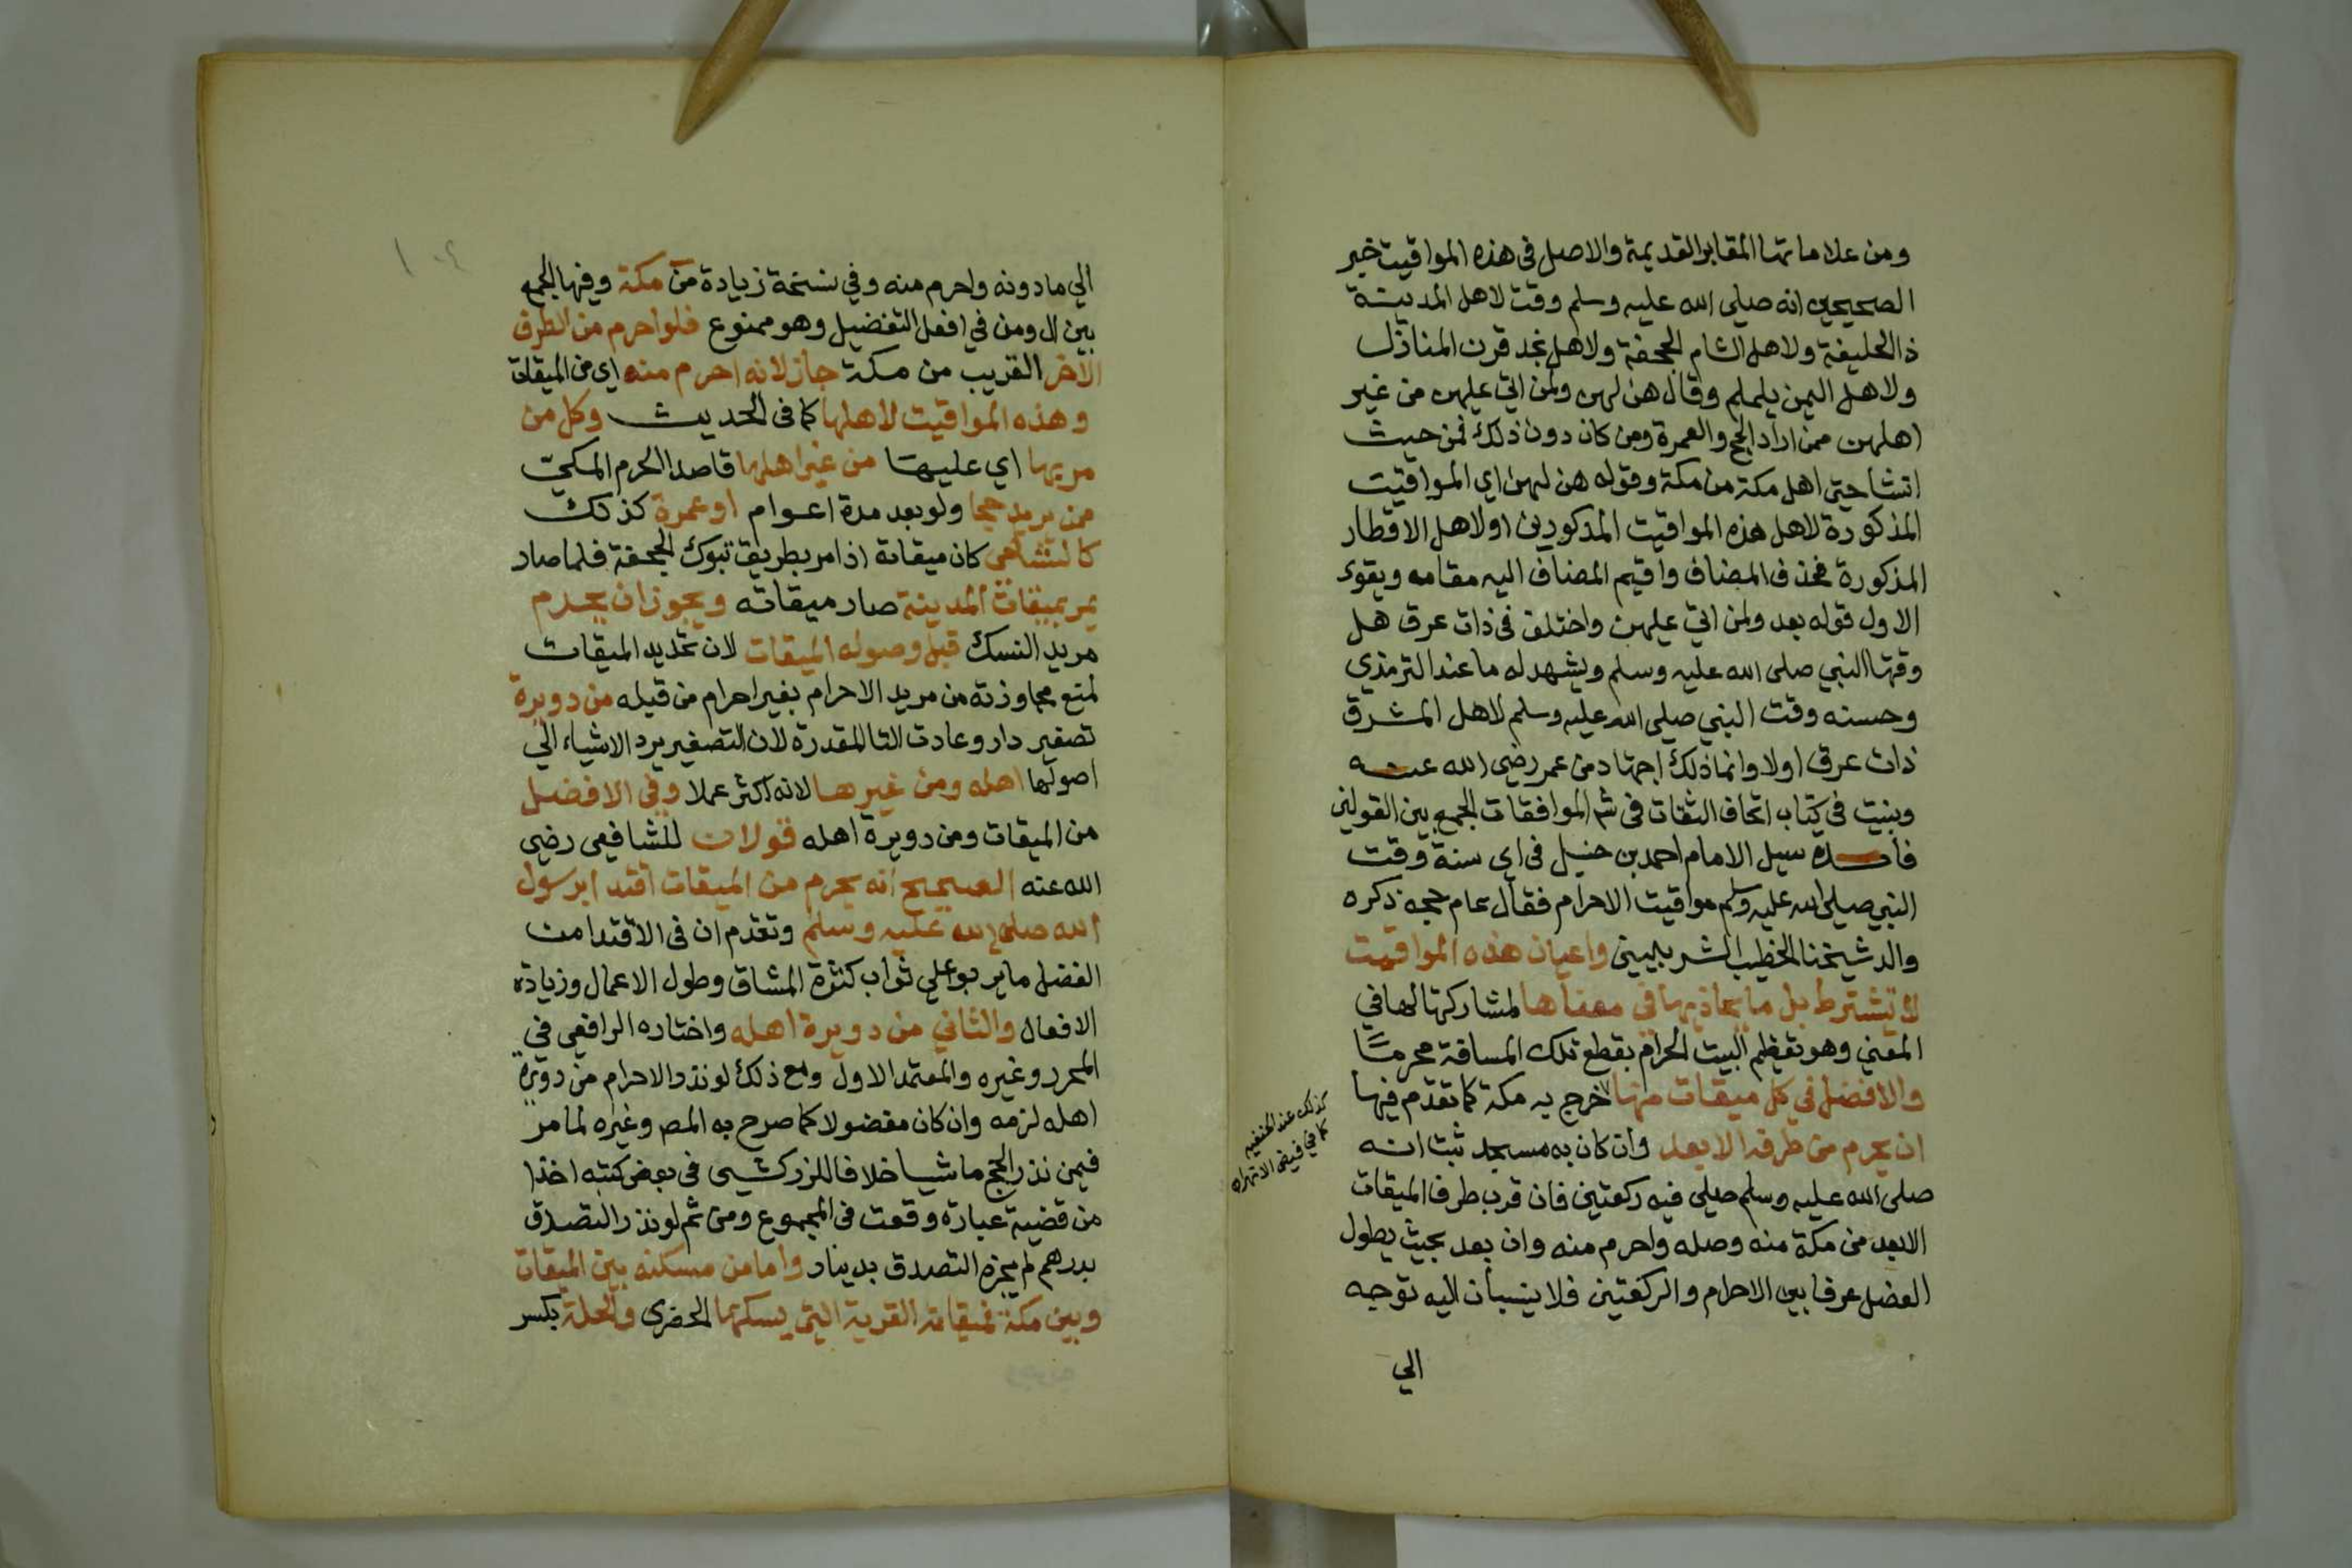 ومن علاماتها المقابر القديمة والاصل في هذه المواقيت خبر
الصحيحين انه صلي الله عليه وسلم وقت لاهل المدينة
ذا الحليفة ولاهل الشام الجحفة ولاهل نجد قرن المنازل
ولاهل اليمن يلملم وقال هن لهن ولمن اتي عليهن من غير
اهلهن ممن اراد الحج والعمرة ومن كان دون ذلك فمن حيث
انشا حتى اهل مكة من مكة وقوله هن لهن اي المواقيت
المذكورة لاهل هذه المواقيت المذكورين اولاهل الاقطار
المذكورة فحذف المضاف واقيم المضاف اليه مقامه ويقوي
الاول قوله بعد ولمن اتي عليهن واختلف في ذات عرق هل
وقتها النبي صلى الله عليه وسلم ويشهد له ما عند الترمذي
وحسنه وقت النبي صلى الله عليه وسلم لاهل المشرق
ذات عرق اولا وانما ذلك اجتهاد من عمر رضي الله عنه
وبينت في كتاب اتحاف الثقات في شرح الموافقات الجمع بين القولين
فائده سيل الامام احمد بن حنبل في اي سنة وقت
النبي صلى الله عليه وسلم مواقيت الاحرام فقال عام حجه ذكره
والد شيخنا الخطيب الشربيني واعيان هذه المواقيت
لا تشترط بل ما يحاذيها في معناها لمشاركتها لها في
المعني وهو تعظيم البيت الحرام بقطع تلك المسافة محرما
والافضل في كل ميقات منها خرج به مكة كما تقدم فيها
ان يحرم من طرفه الابعد وان كان به مسجد ثبت انه
صلى الله عليه وسلم صلى فيه ركعتين فان قرب طرف الميقات
الابعد من مكة منه وصله واحرم منه وان بعد بحيث يطول
الفصل عرفا بين الاحرام والركعتين فلا ينسبان اليه توجه
الي
كذلك عند الحنفيه
كما في فيض الانهر
الي ما دونه واحرم منه وفي نسخة زيادة من مكة وفيها الجمع
بين ال ومن في افعل التفضيل وهو ممنوع فلو احرم من الطرف
الاخر القريب من مكة جاز لانه احرم منه اي من الميقات
وهذه المواقيت لاهلها كما في الحديث وكل من
مر بها اي عليها من غير اهلها قاصدا الحرم المكي
ممن يريد حجا ولو بعد مدة اعوام او عمرة كذلك
كالشامي كان ميقاته اذا مر بطريق تبوك الجحفة فلما صار
يمر بميقات المدينة صار ميقاته ويجوز ان يحرم
مريد النسك قبل وصوله الميقات لان تحديد الميقات
لمنع مجاوزته من مريد الاحرام بغير احرام من قبله من دويرة
تصغير دار وعادت التا المقدرة لان التصغير يرد الاشياء الي
اصولها اهله ومن غيرها لانه اكثر عملا وفي الافضل
من الميقات ومن دويرة اهله قولان للشافعي رضي
الله عنه الصحيح انه يحرم من الميقات اقتدا برسول
الله صلى الله عليه وسلم وتقدم ان في الاقتدا من
الفضل ما يربو علي ثواب كثرة المشاق وطول الاعمال وزيادة
الافعال والثاني من دويرة اهله واختاره الرافعي في
المحرر وغيره والمعتمد الاول ومع ذلك لو نذر الاحرام من دويرة
اهله لزمه وان كان مفضولا كما صرح به المص وغيره لما مر
فيمن نذر الحج ماشيا خلافا للزركشي في بعض كتبه اخذا
من قضية عبارة وقعت في المجموع ومن ثم لو نذر التصدق
بدرهم لم يجزه التصدق بدينار واما من مسكنه بين الميقات
وبين مكة فميقاته القرية التي يسكنها الحضري والحلة بكسر
١٠٤